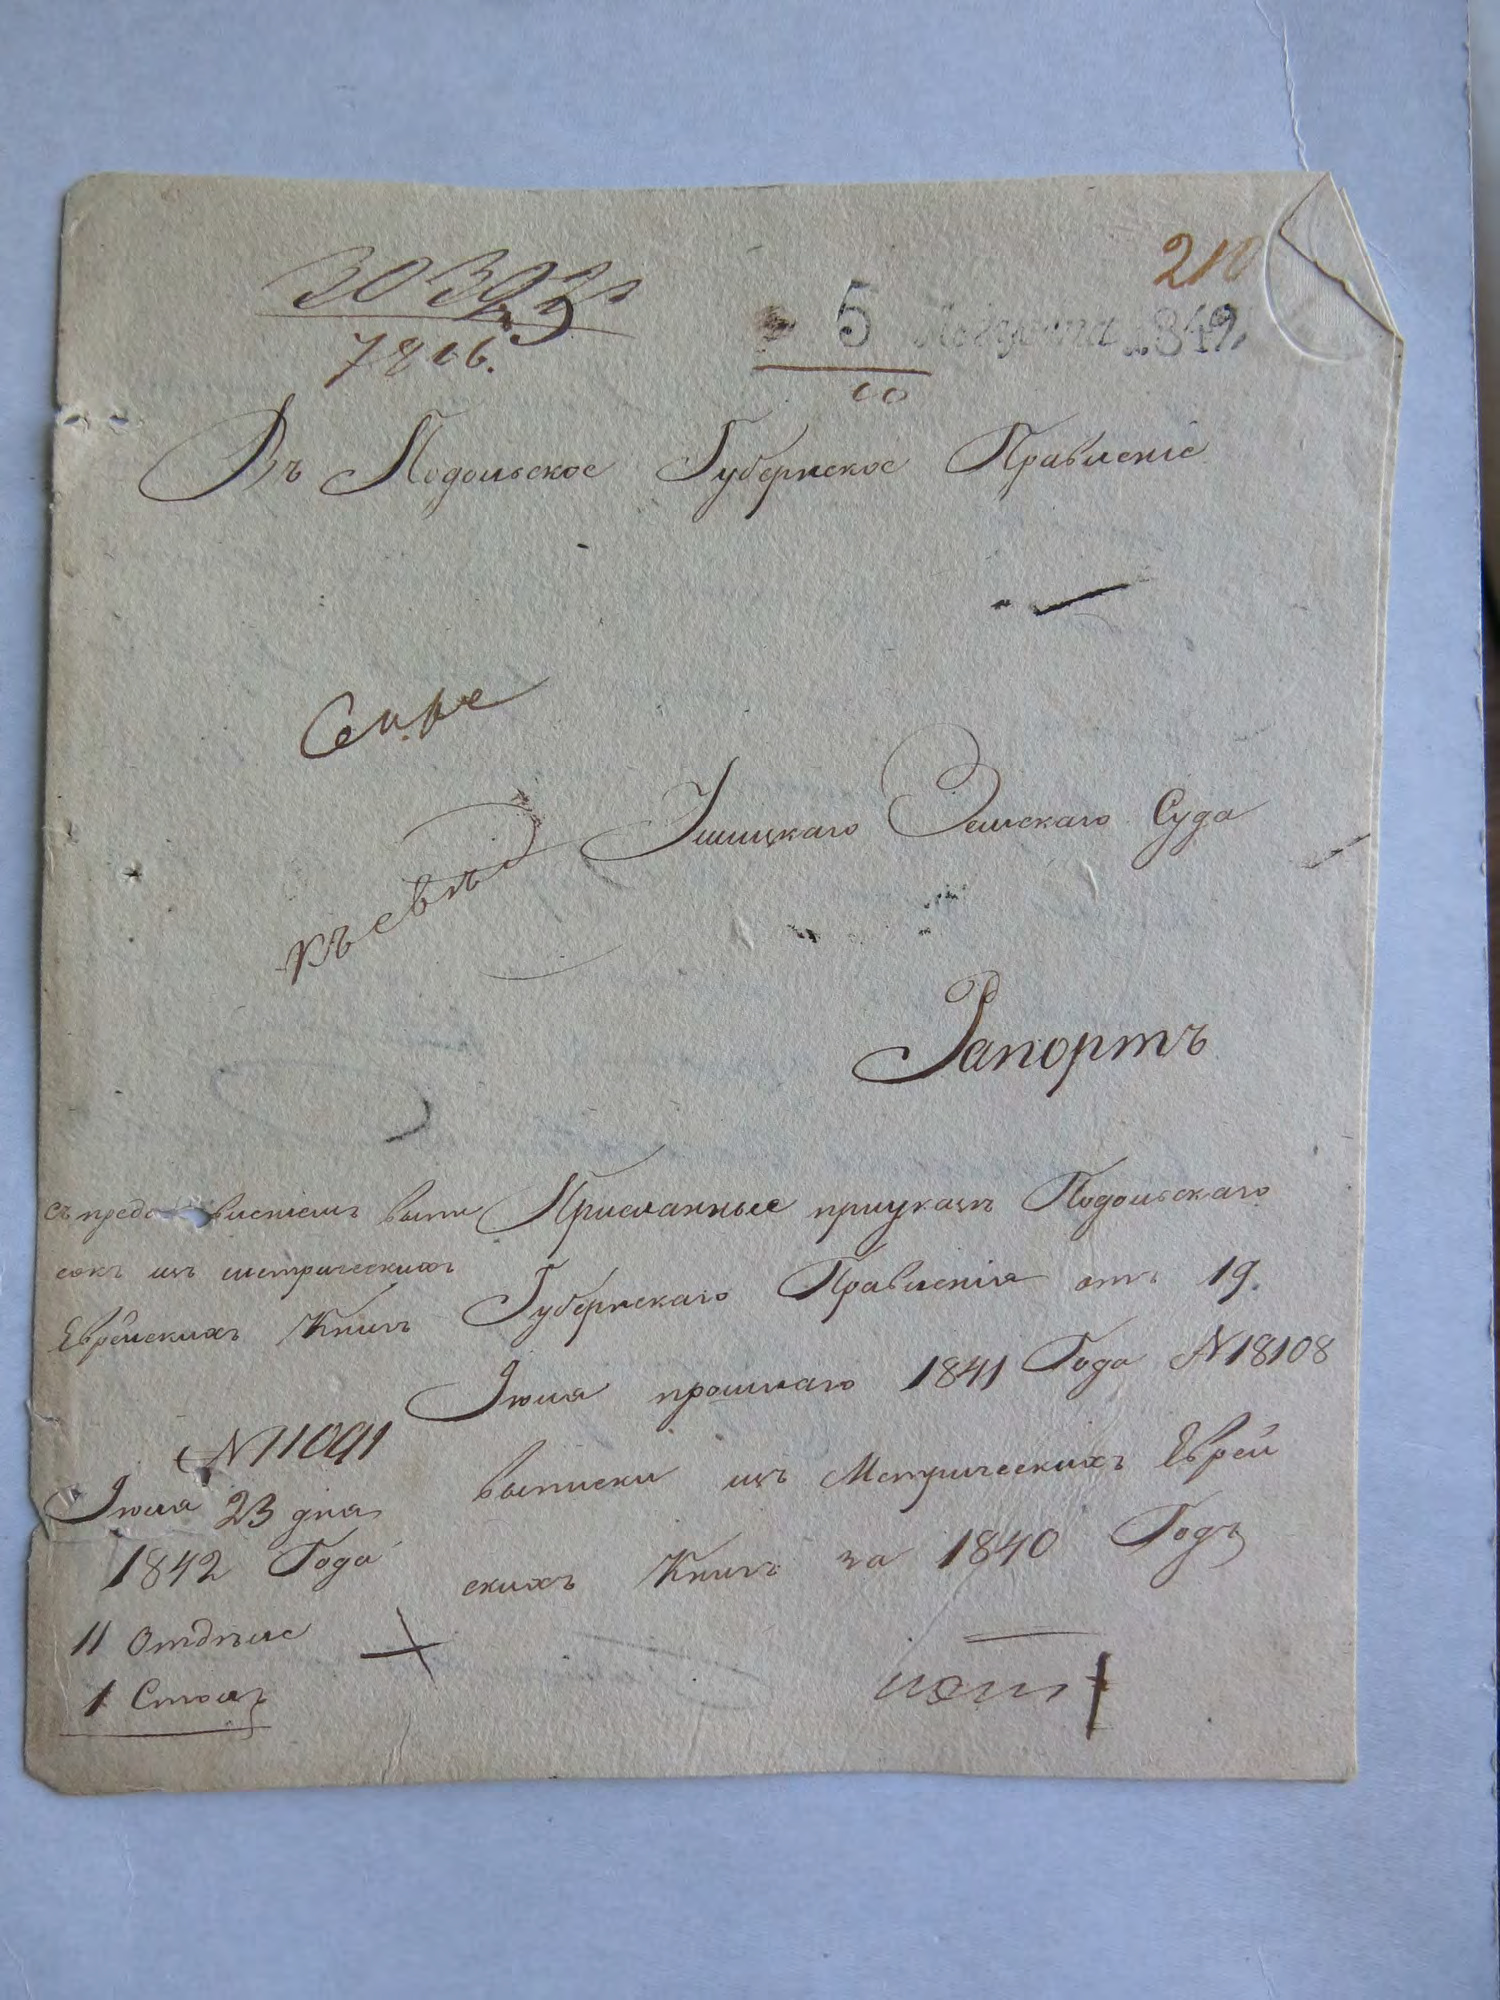 210
5 Августа 1842
7806.
Въ Подольское Губернское Правленіе
Ушицкаго Земскаго Суда
Рапортъ
съ предс влениемъ выпи
сокъ изъ метрическихъ
Еврейскихъ Книгъ
Присланные приуказѣ Подольскаго
Губернскаго Правленія отъ 19.
Іюля прошлаго 1841 Года №18108
выписки изъ Метрическихъ Еврей
скихъ Книгъ за 1840 Годъ
№11091
Іюля 23 дня
1842 Года
11 Отдѣле
1 Столъ